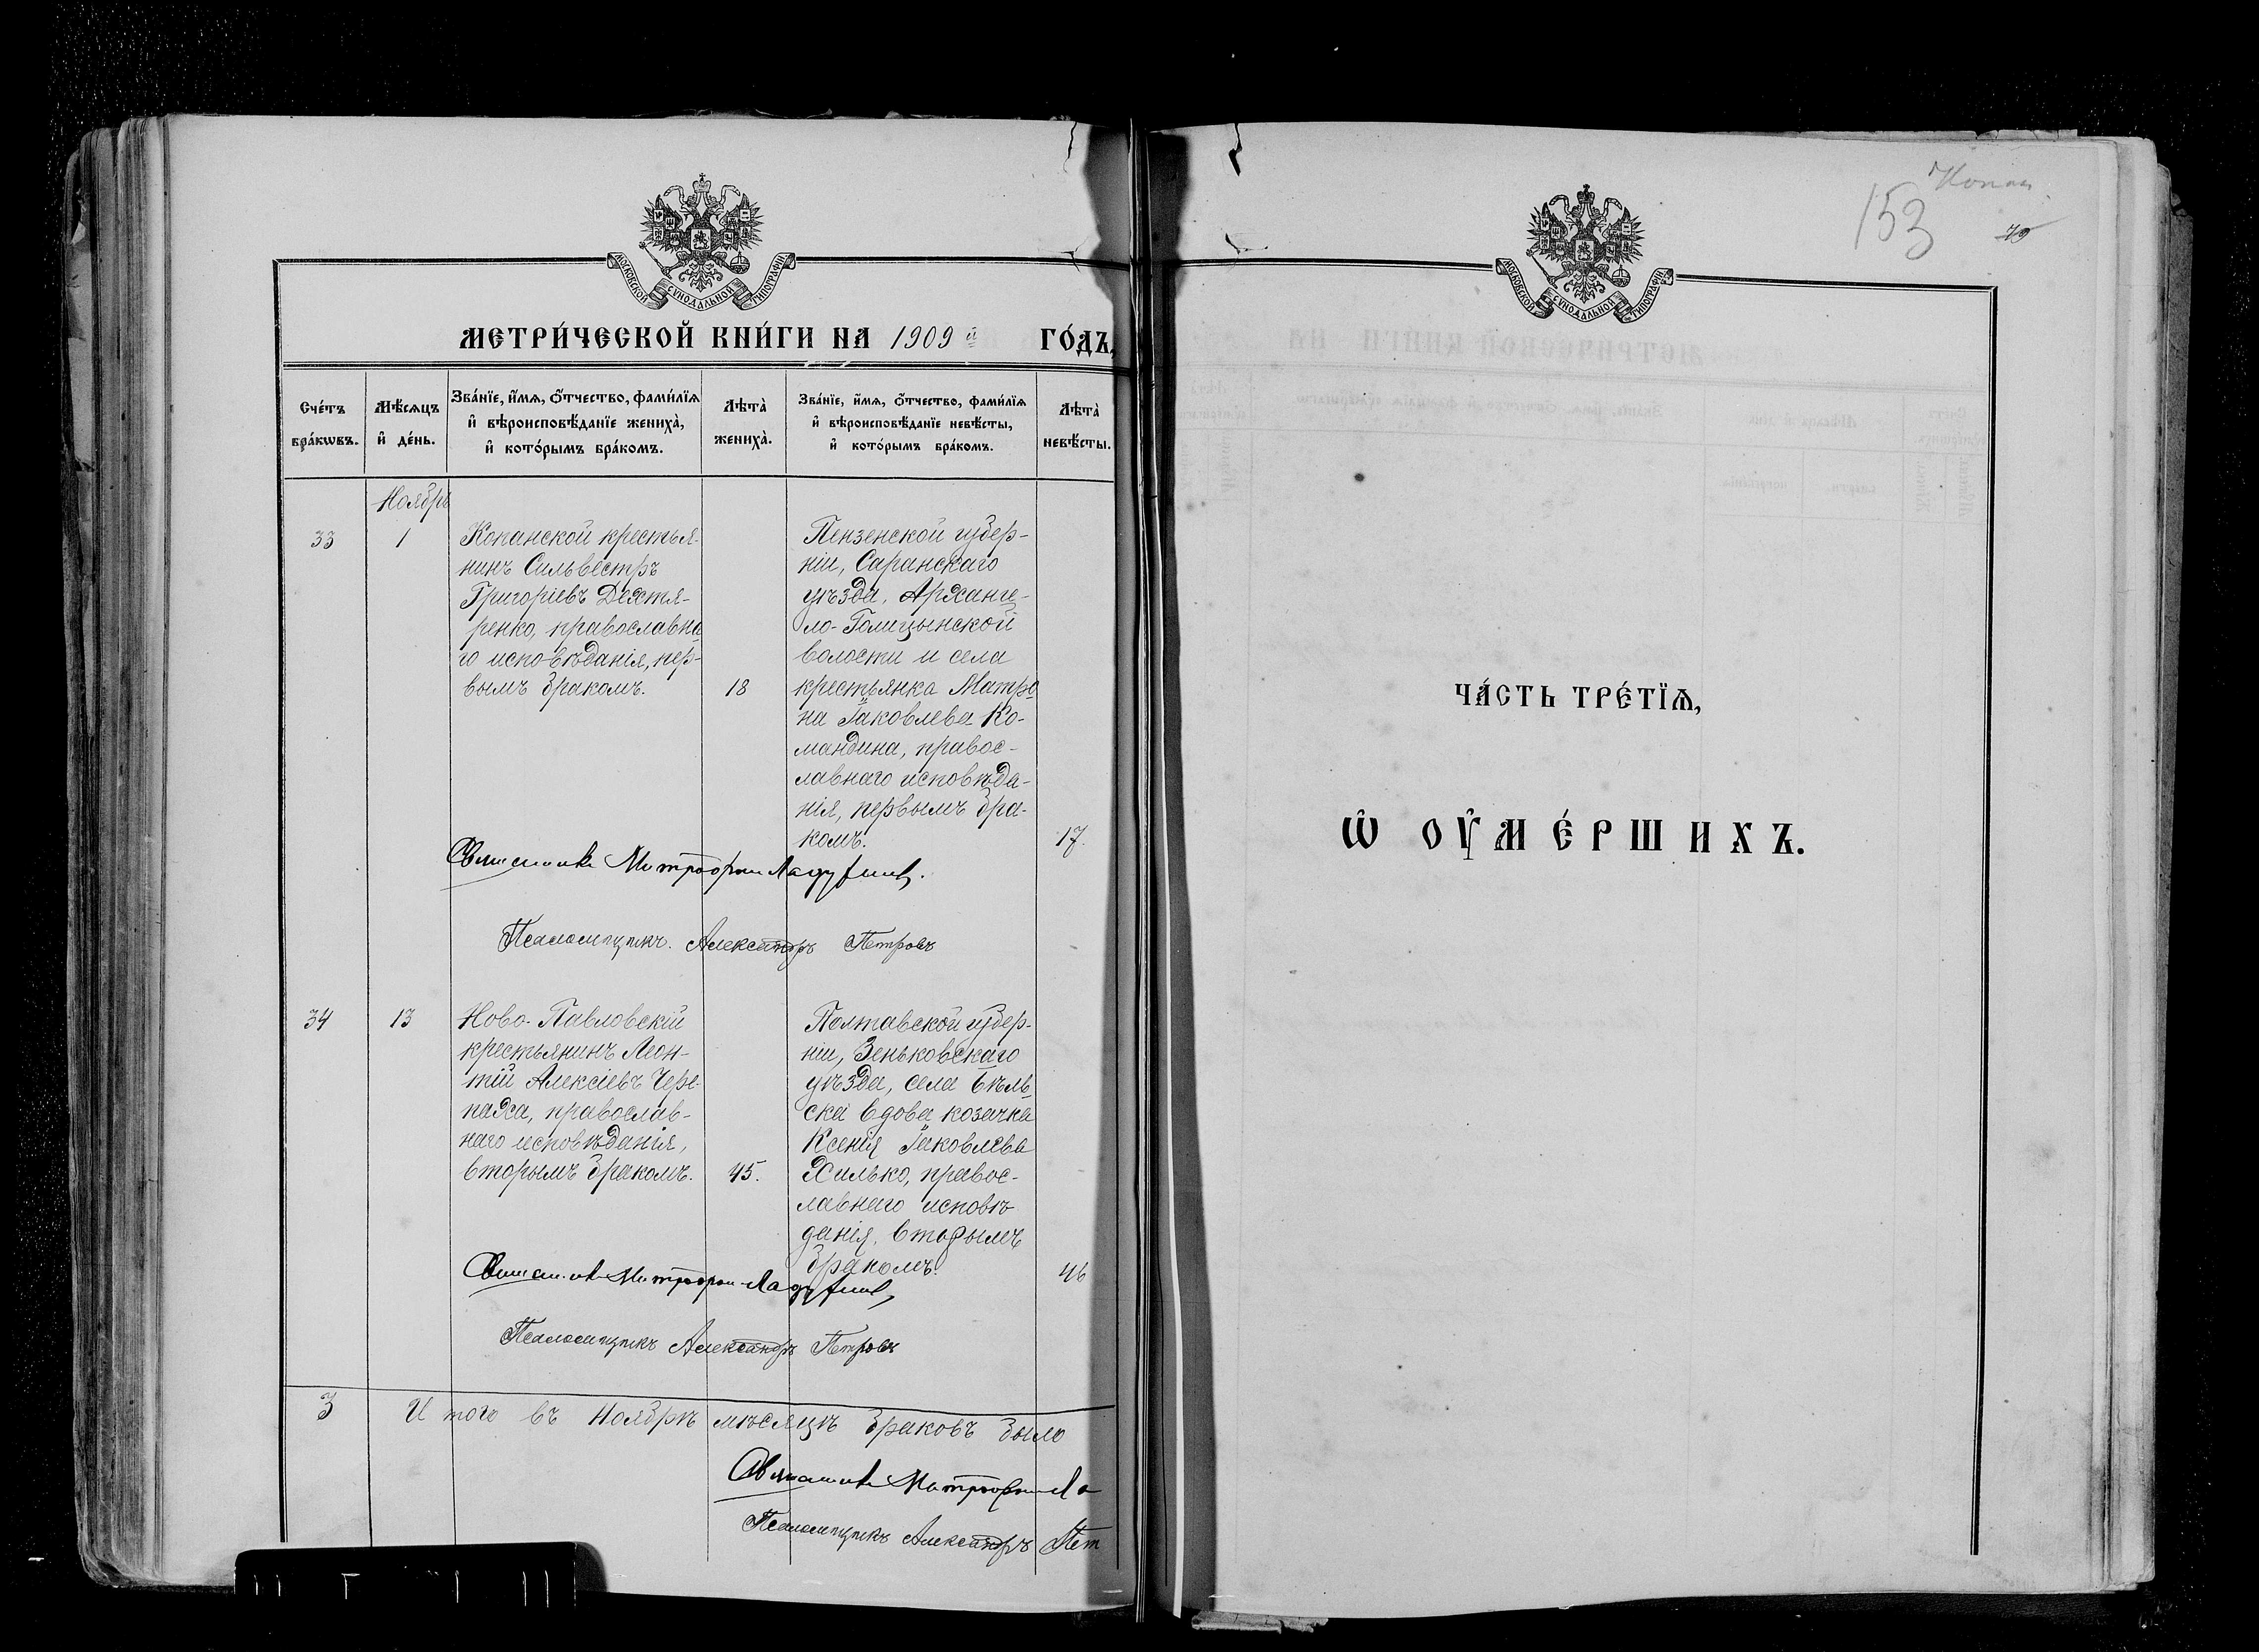 МОСКОВСКОЙ СѴНОДАЛЬНОЙ ТИПОГРАФІИ
МЕТРИ́ЧЕСКОЙ КНИ́ГИ НА 1909й ГО́ДЪ,
Сче́тъ бра́кѡвъ.
Мѣ́сѧцъ и҆ де́нь.
Зва́нїе, и҆́мѧ, ѻ҆́тчество, фами́лїѧ
и҆ вѣроисповѣ́данїе жениха̀,
и҆ кото́рымъ бра́комъ.
Лѣта̀ жениха̀.
Зва́нїе, и҆́мѧ, ѻ҆́тчество, фами́лїѧ
и҆ вѣроисповѣ́данїе невѣ́сты,
и҆ кото́рымъ бра́комъ.
Лѣта̀ невѣ́сты.
Ноябрь
33
1
Копанской крестья-
нинъ Сильвестръ
Григоріевъ Дехтя-
ренко, православна
го исповѣданія, пер-
вымъ бракомъ.
18
Пензенской губер-
ніи, Саранскаго
уѣзда, Арханге-
ло-Голицынской
волости и села
крестьянка Матро
на Іаковлева Ко-
мандина, правос-
лавнаго исповѣда-
нія, первымъ бра-
комъ.
17.
Священникъ Митрофан
Псаломщикъ. Александръ Петровъ
34
13
Ново-Павловскій
крестьянинъ Леон-
тій Алексіевъ Чере
паха, православ-
наго исповѣданія,
вторымъ бракомъ.
45.
Полтавской губер-
ніи, Зеньковскаго
уѣзда, села Бѣль
ска вдова козачка
Ксенія Іаковлева
Хилько, правос-
лавнаго исповѣ
данія, вторымъ
бракомъ.
46
Священникъ Митрофан
Псаломщикъ Александръ Петровъ
3
Итого въ Ноябрѣ мѣсяцѣ браковъ было
Священникъ Митрофан Ла
Псаломщикъ Александръ Пет
153
70
МОСКОВСКОЙ СѴНОДАЛЬНОЙ ТИПОГРАФІИ
ЧА́СТЬ ТРЕ́ТЇѦ,
Ѡ҆ ОУ҆МЕ́РШИХЪ.